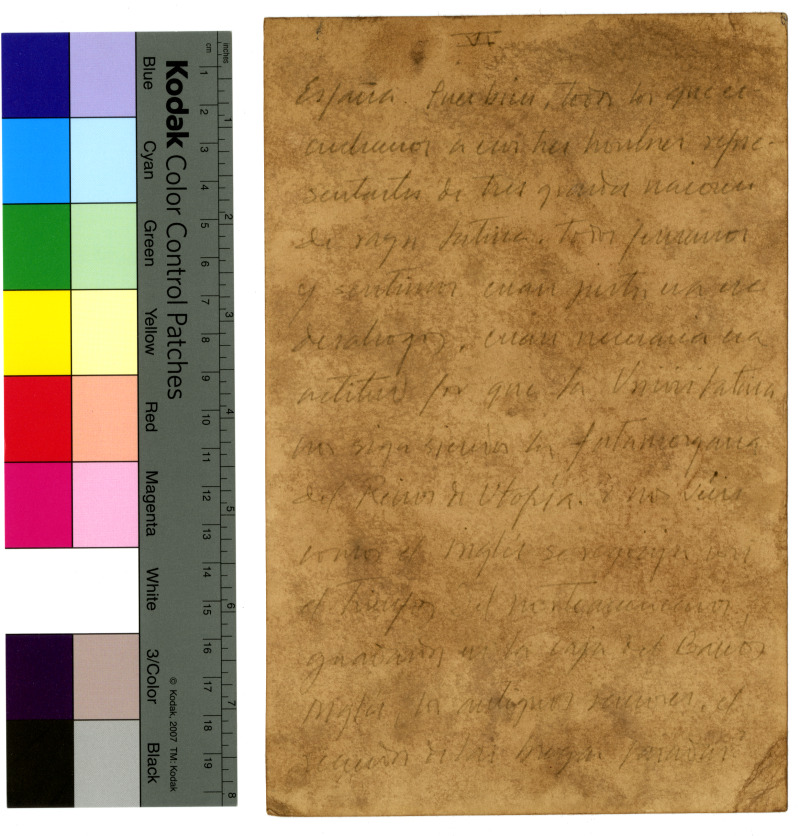 VI
España. Pues bien, todos los que es-
cuchamos a esos tres hombres repre-
sentantes de tres grandes naciones
de raza latina, todos pensamos
y sentimos cuan justo era ese
desahogo, cuan necesaria esa
actitud por que la Union latina
no siga siendo la fatamorgana
del Reino de Utopia. i no
como el Ingles se regocija con
el triunfo el norteamericano,
en la caja del Banco
Ingles, los antiguos rencores, el
recuerdo de las
Kodak Color Control Patches
Blue
Cyan
Green
Yellow
Red
Magenta
White
3/Color
Black
© Kodak, 2007 TM: Kodak
cm 1 2 3 4 5 6 7 8 9 10 11 12 13 14 15 16 17 18 19
inches 1 2 3 4 5 6 7 8